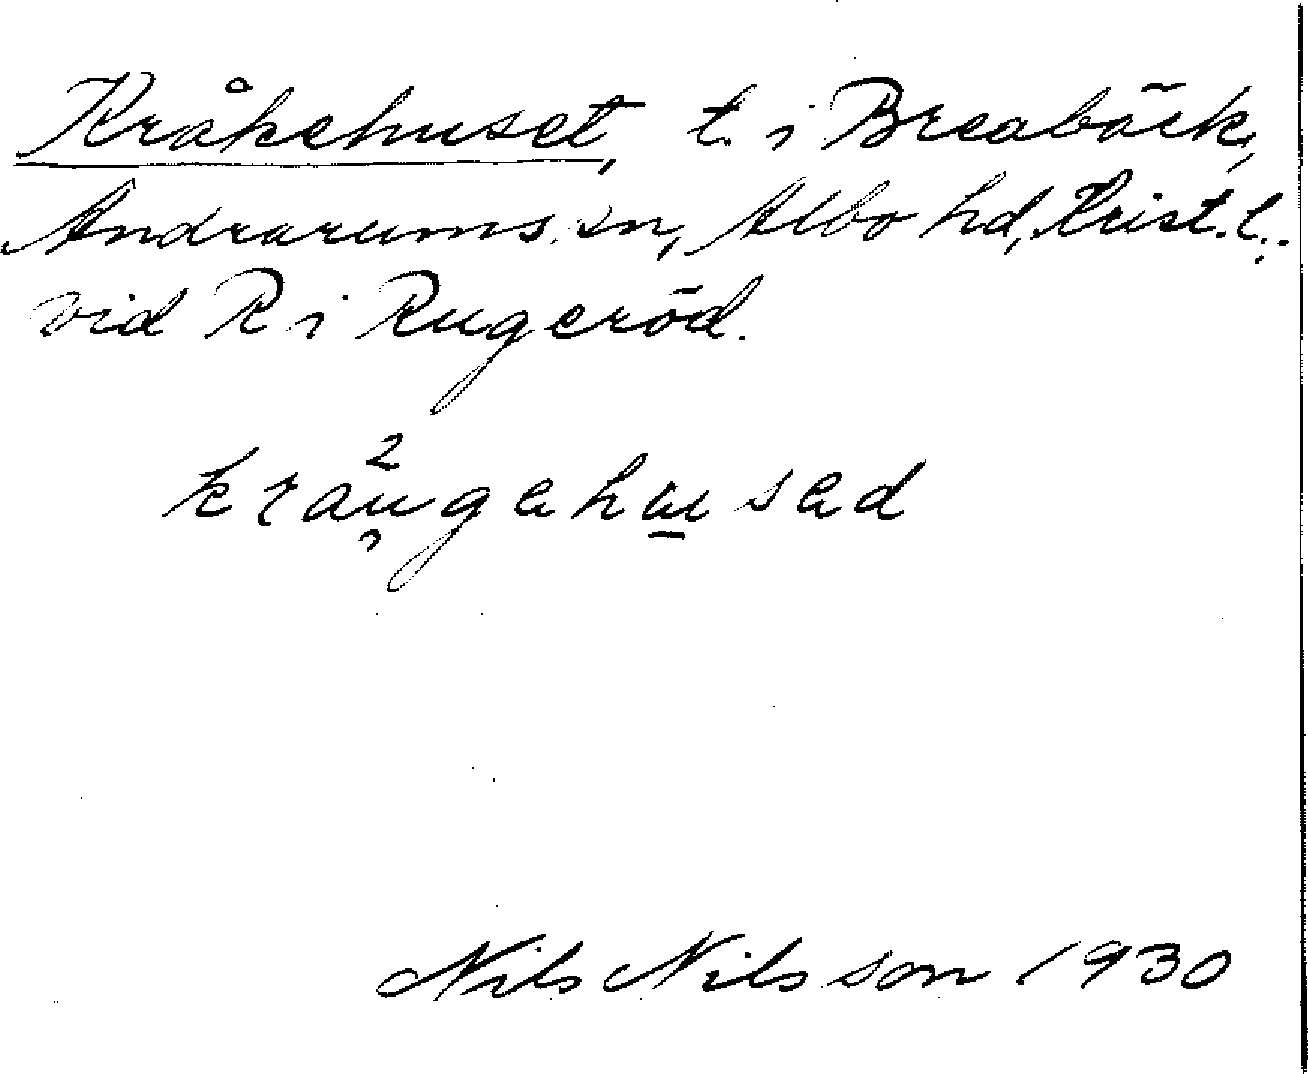 Kråkehuset, t. i Breabäck,
Andrarums sn, Albo hd, Krist. l.;
vid R i Rugeröd.
Nils Nilsson 1930